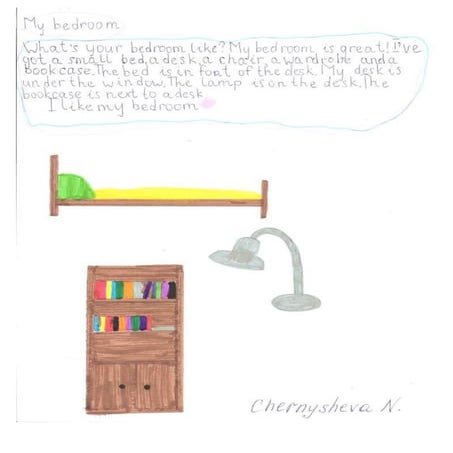 My bedroom
What's your bedroom like? My bedroom is great! I've
got a small bed, a desk, a chair, a wardrobe and a
bookcase. The bed is in font of the desk. My desk is
under the window. The lamp is on the desk. The
bookcase is next to a desk
I like my bedroom
Chernysheva N.